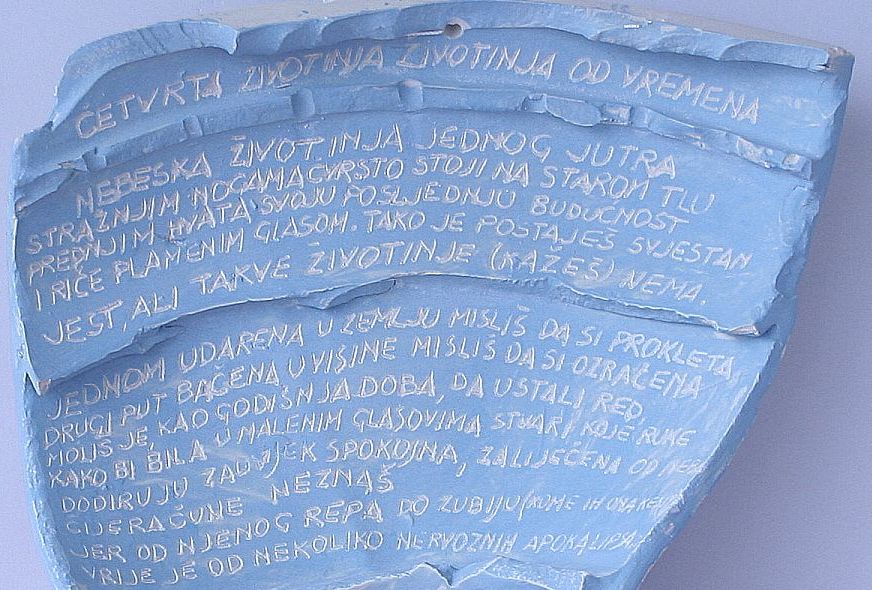 ČETVRTA ŽIVOTINJA ŽIVOTINJA OD VREMENA
NEBESKA ŽIVOTINJA JEDNOG JUTRA
STRAŽNJIM NOGAMA ČVRSTO STOJI NA STAROM TLU
PREDNJIM HVATA SVOJU POSLJEDNJU BUDUĆNOST
I RIČE PLAMENIM GLASOM. TAKO JE POSTAJEŠ SVJESTAN
JEST, ALI TAKVE ŽIVOTINJE (KAŽEŠ) NEMA.
JEDNOM UDARENA U ZEMLJU MISLIŠ DA SI PROKLETA,
DRUGI PUT BAČENA U VISINE MISLIŠ DA SI OZRAČENA
MOLIŠ JE, KAO GODIŠNJA DOBA, DA USTALI RED,
KAKO BI BILA U MALENIM GLASOVIMA STVARI KOJE RUKE
DODIRUJU ZAUVJEK SPOKOJNA, ZALIJEČENA OD NEBA
CIJE RAČUNE NEZNAŠ
JER OD NJENOG REPA DO ZUBIJU (KOME IH ONA
VRIJE JE OD NEKOLIKO NERVOZNIH